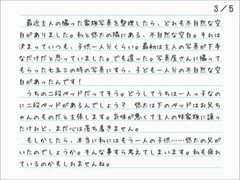 3/5
最近主人の撮った家族写真を整理したら、どれも不自然な空白がありました。私と悠太の隣にある、不自然な空白。それは決まっていつも、子供一人分くらい。最初は主人の写真が下手なだけだと思っていました。でも違った。写真屋さんに撮ってもらった七五三の時の写真にすら、子ども一人分の不自然な空白があったんです！
うちの二段ベッドだってそう。どうしてうちは一人っ子なのに二段ベッドがあるんでしょう？悠太は下のベッドはお兄ちゃんのものだと主張します。気味が悪くて主人の妹家族に譲ったけれど、まだ心は落ち着きません。
もしかしたら、本当に私にはもう一人の子供……悠太の兄がいたのでしょうか。そんな事すら考えてしまいます。私も疲れているのかもしれませんね。